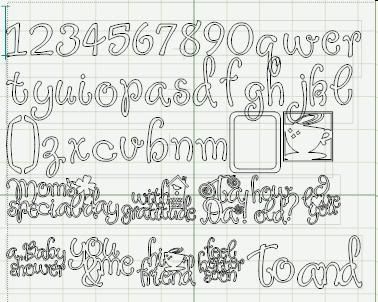 1234567890qwer
tyuiopasdfghjkl
zxcvbnm
Mom's with how
special day gratitude Day! old? you
a Baby you hi feel to and
shower & me friend better soon